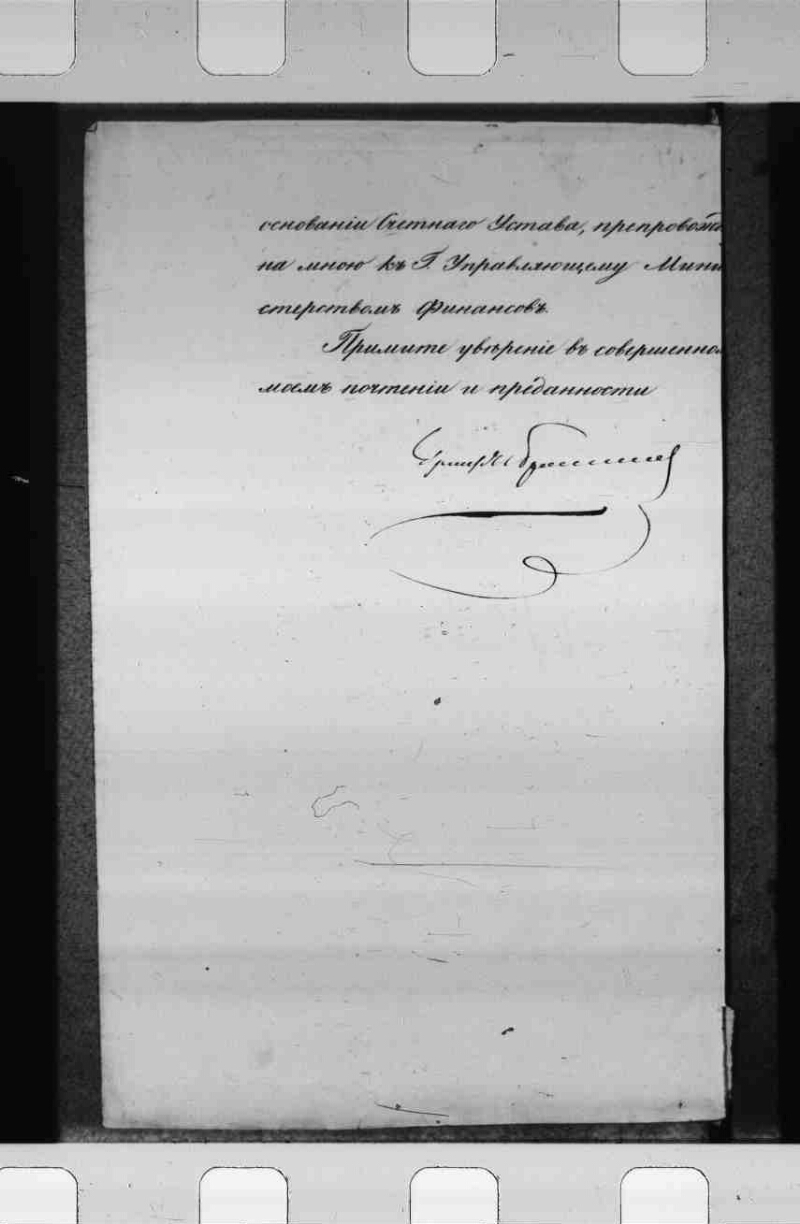 основаніи Счетнаго Устава, препровожде
на мною къ Г. Управляющему Мини
стерствомъ Финансовъ.
Примите увѣреніе въ совершенном
моемъ почтеніи и преданности